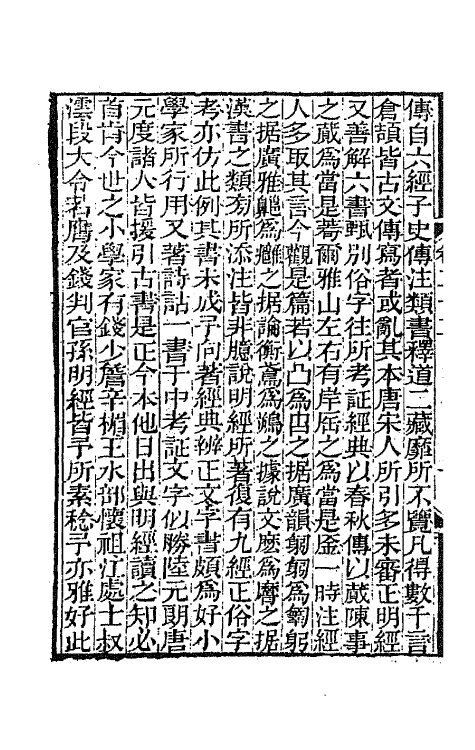 傳自六經子史傳注類書釋道二藏靡所不覽凡得數千言
倉頡皆古文傳寫者或亂其本唐宋人所引多未審正明經
又善解六書甄別俗字往所考証經典以春秋傳以蕆陳事
之蕆為當是蕁爾雅山左右有岸厒之為當是㕉一時注經
人多取其言今觀是篇若以凸為㐁之据廣韻匑匑為匔躬
之据廣雅為之据論衡鳶為鷂之據說文麽為麿之据
漢書之類㫄所添注皆非臆說明經所著復有九經正俗字
考亦仿此例其書未成予向著經典辨正文字書頗為好小
學家所行用又著詩詁一書于中考証文字似勝陸元朗唐
元度諸人皆援引古書是正今本他日出與明經讀之知必
首肯今世之小學家有錢少詹辛楣王水部懷祖江處士叔
澐段大令若膺及錢判官孫明經皆予所素稔予亦雅好此